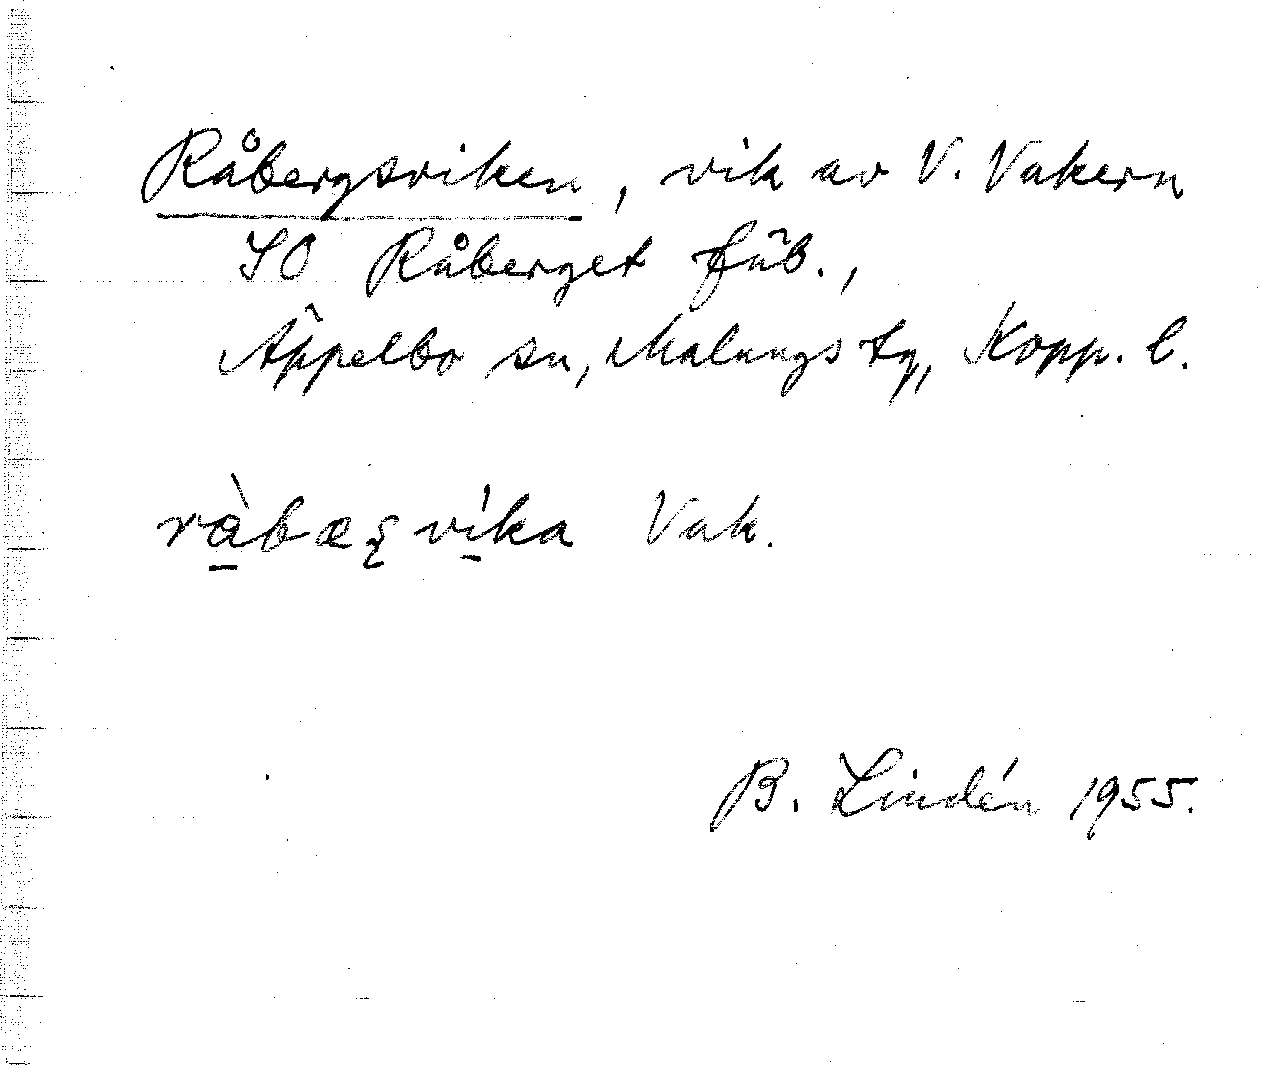 Råbergsviken, vik av V. Vakern
SO Råberget fäb.,
Äppelbo sn, Malungs tg, Kopp. l.
ràbæʂvíka Vak.
B. Lindén 1955.